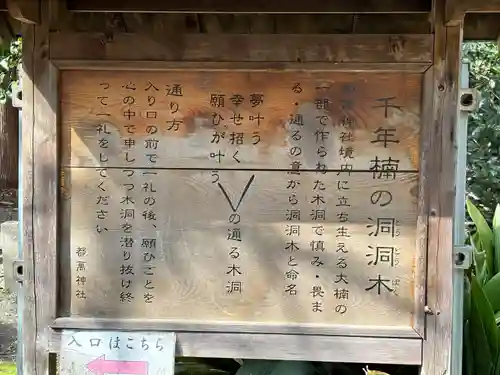 千年楠の洞洞木
とうとうぼく
都萬神社境内に立ち生える大楠の
一部で作られた木洞で慎み・畏ま
る・通るの意から洞洞木と命名
夢叶う
幸せ招く
願ひが叶う
の通る木洞
通り方
入り口の前で一礼の後、願ひごとを
心の中で申しつつ木洞を潜り抜け終
って一礼をしてください
都萬神社
入口はこちら